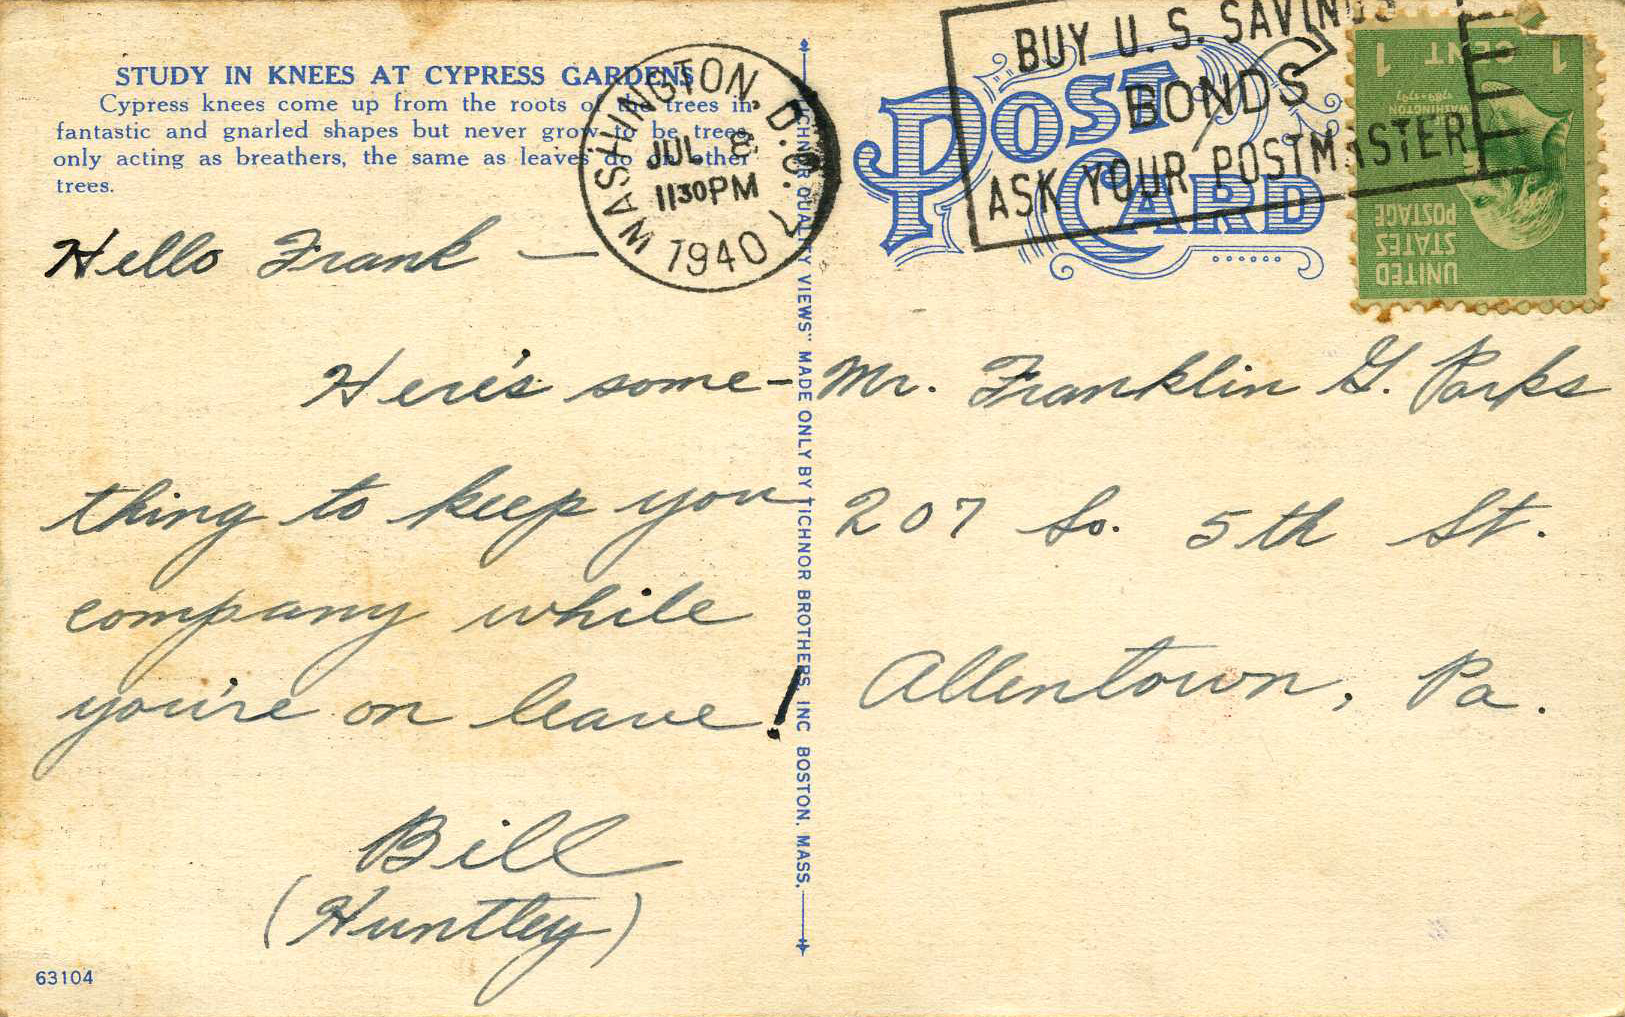 STUDY IN KNEES AT CYPRESS GARDENS
Cypress knees come up from the roots of the trees in
fantastic and gnarled shapes but never grow to be trees,
only acting as breathers, the same as leaves do on other
trees.
WASHINGTON, D.C.
JUL 8
1130PM
1940
BUY U.S. SAVINGS
BONDS
ASK YOUR POSTMASTER
POST CARD
1 CENT 1
WASHINGTON
1789-1797
UNITED
STATES
POSTAGE
Hello Frank —
Here's some-
thing to keep you
company while
you're on leave!
Bill
(Huntley)
TICHNOR QUALITY VIEWS" MADE ONLY BY TICHNOR BROTHERS, INC BOSTON, MASS.
Mr. Franklin G. Parks
207 So. 5th St.
Allentown, Pa.
63104